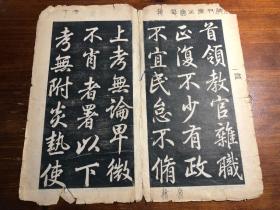 首領教官雜職
正復不少有政
不宜民怠不脩
上考無論畀微
不肖者署以下
考無附炎熱使